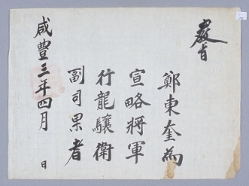 敎旨
鄭東奎爲
宣略將軍
行龍驤衛
副司果者
咸豐三年四月 日